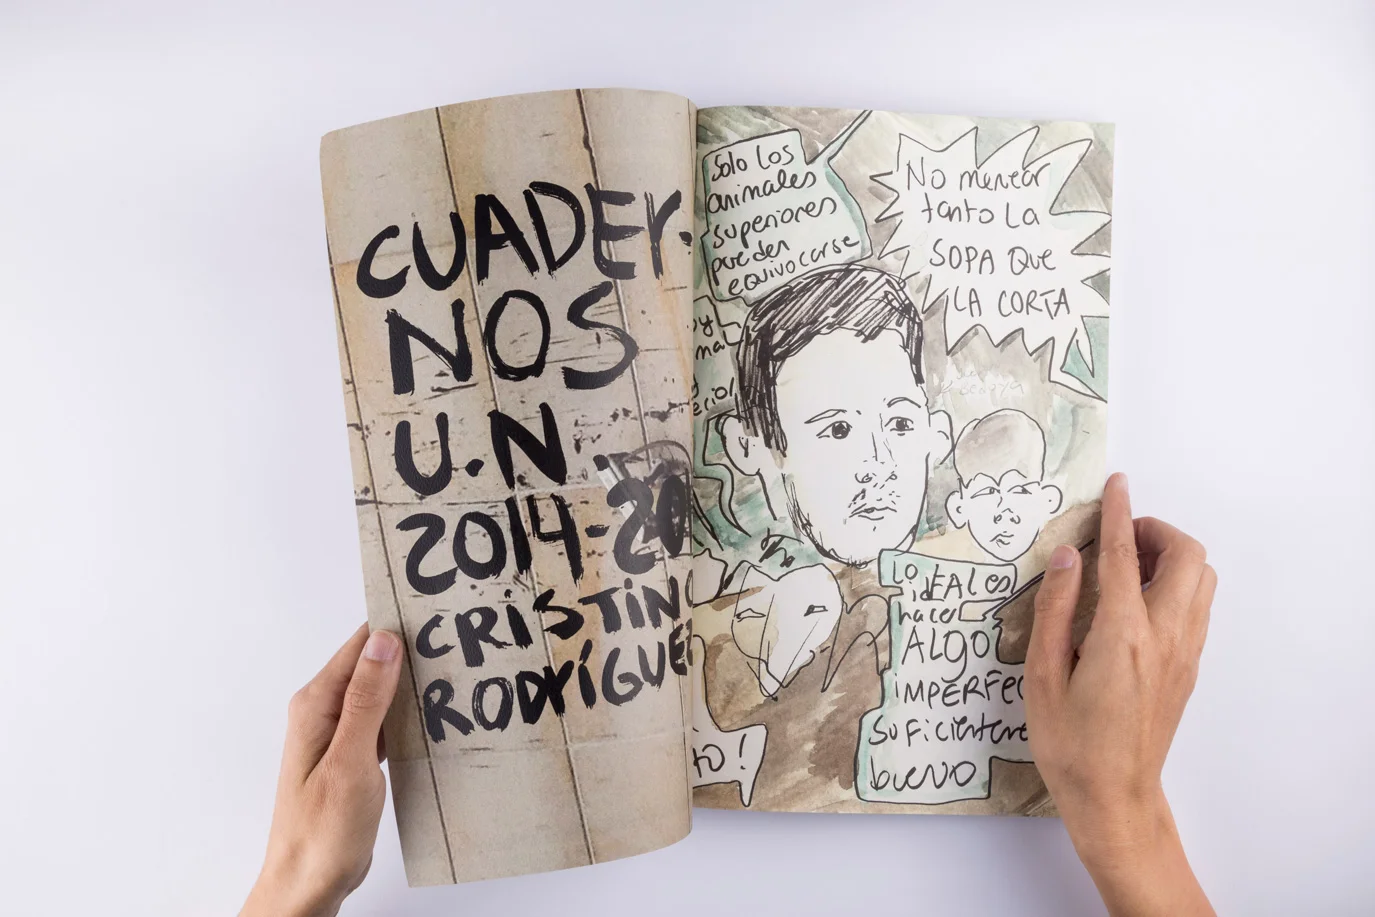 CUADER-
NOS
U.N.
2014-20
CRISTINA
RODRÍGUE
Solo los
animales
superiores
pueden
equivocarse
No menear
tanto LA
SOPA QUE
LA CORTA
Lo
idEAL es
hacer
ALGO
iMPERFEC
suficienteme
bueno
TO!